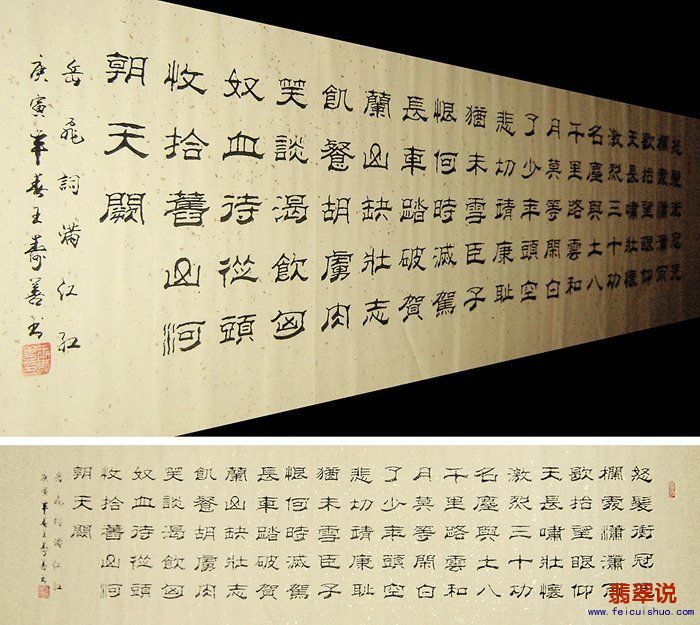 怒髮衝冠憑
欄處瀟瀟雨
歇抬望眼仰
天長嘯壯懷
激烈三十功
名塵與土八
千里路雲和
月莫等閑白
了少年頭空
悲切靖康耻
猶未雪臣子
恨何時滅駕
長車踏破賀
蘭山缺壯志
飢餐胡虜肉
笑談渴飲匈
奴血待從頭
收拾舊山河
朝天闕
岳飛詞滿江紅
庚寅年春王壽善書
怒髮衝冠憑
欄處瀟瀟雨
歇抬望眼仰
天長嘯壯懷
激烈三十功
名塵與土八
千里路雲和
月莫等閑白
了少年頭空
悲切靖康耻
猶未雪臣子
恨何時滅駕
長車踏破賀
蘭山缺壯志
飢餐胡虜肉
笑談渴飲匈
奴血待從頭
收拾舊山河
朝天闕
岳飛詞滿江紅
庚寅年春王壽善書
翡翠说
www.feicuishuo.com